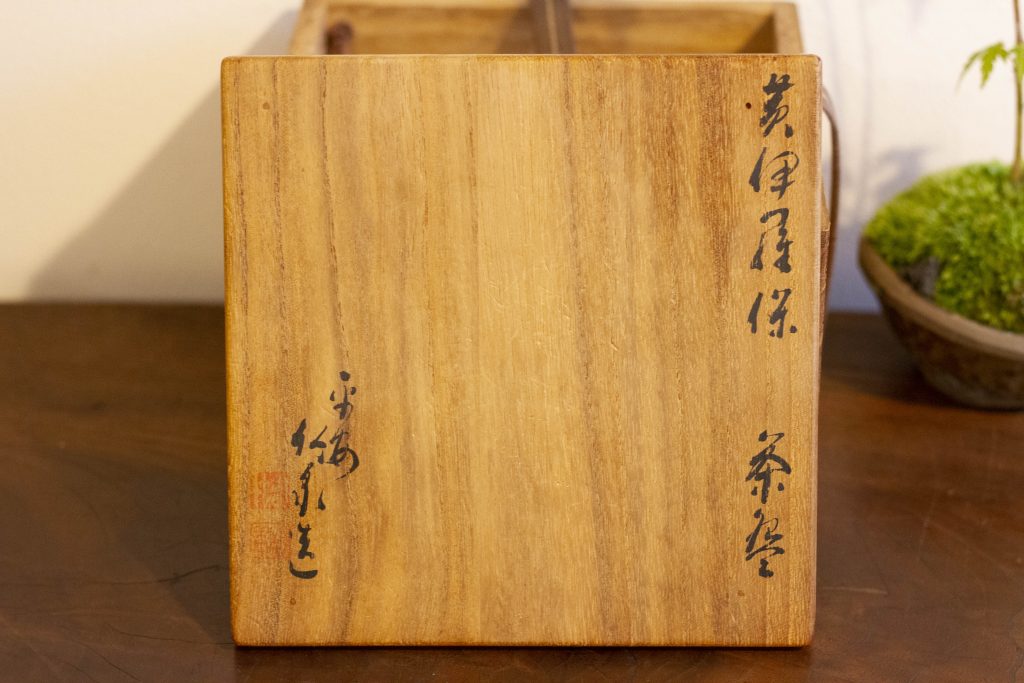 黄伊羅保　茶盌
平安
竹泉造